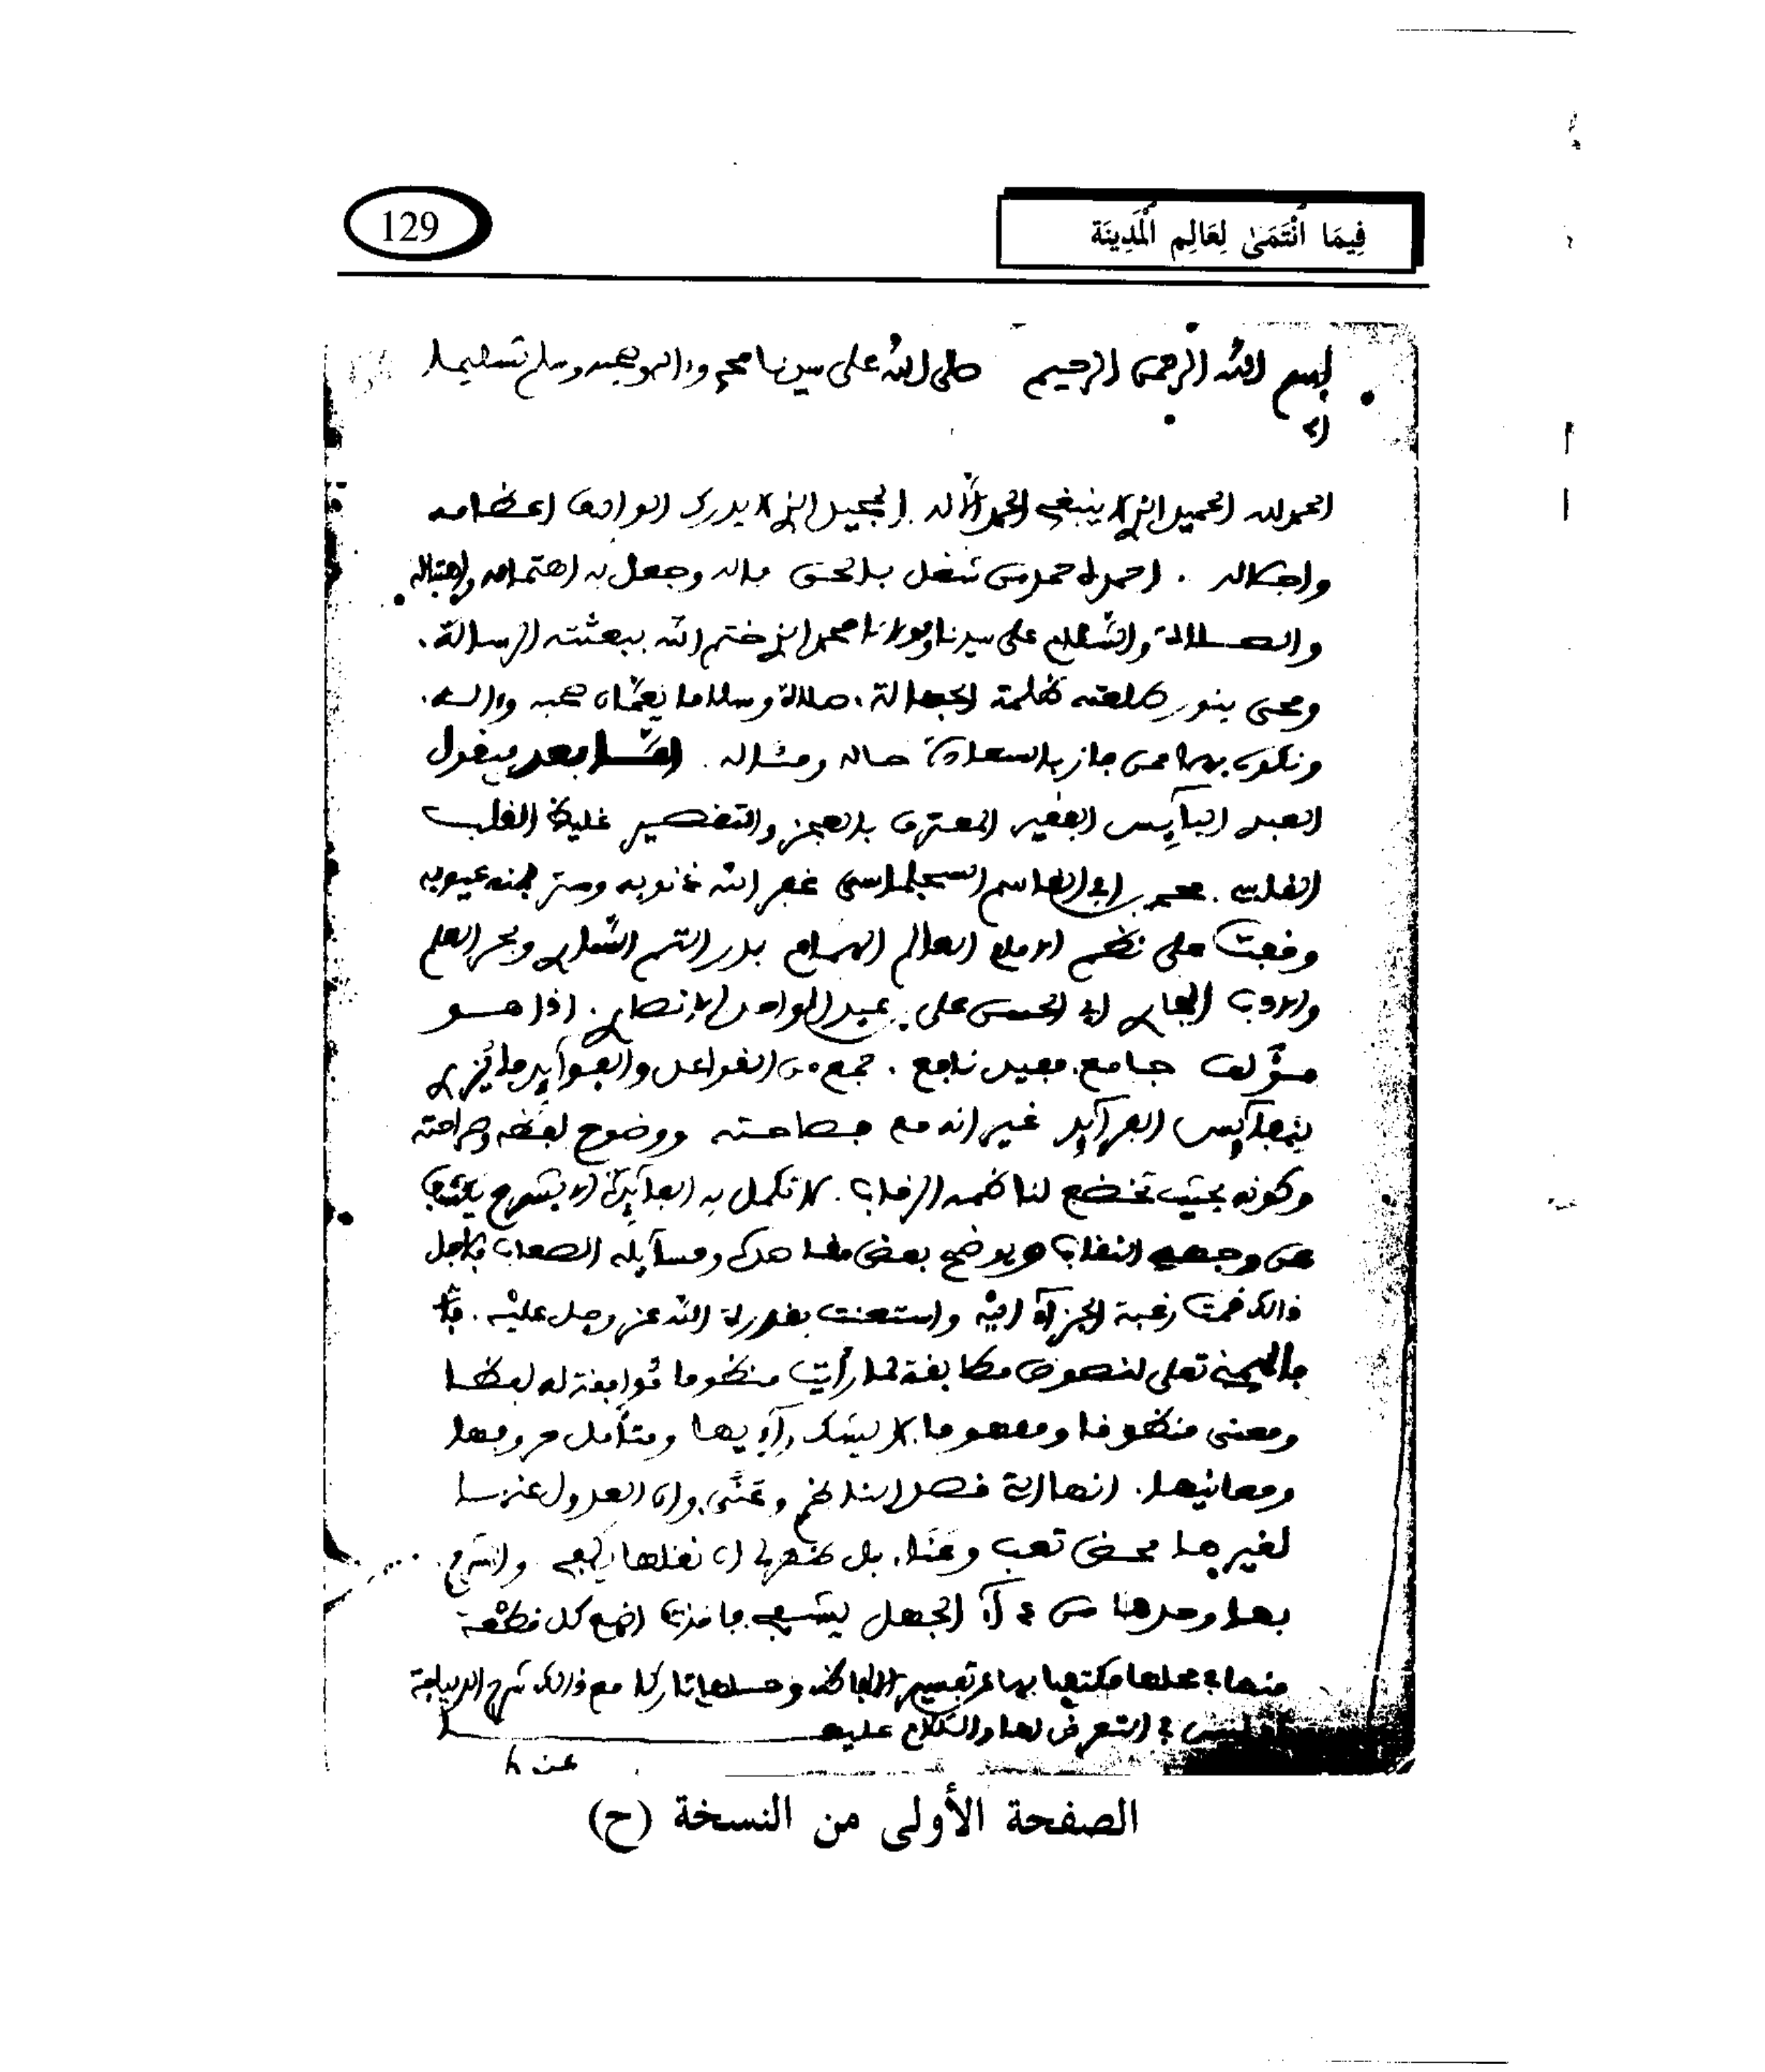 فِيمَا ٱنْتَمَىٰ لِعَالِمِ ٱلْمَدِينَة
129
بسم الله الرحمن الرحيم صلى الله على سيدنا محمد وءاله وصحبه وسلم تسليما
الحمد لله الحميد الذي لا ينبغي الحمد إلا له. المجيد الذي لا يدرك الواصف اعظامه
واجلاله. احمده حمد من شغل بالحق باله وجعل به اهتمامه واهتباله
والصلاة والسلام على سيدنا ومولانا محمد الذي ختم الله ببعثته الرسالة.
ومحى بنور طلعته ظلمة الجهالة. صلاة وسلاما يعمان صحبه وءاله.
ونكون بهما ممن فاز بالسعادة حاله ومئاله. امّا بعد فيقول
العبد البآيس الفقير المعترف بالعجز والتقصير غليظ القلب
القاسي. محمد بن ابي القاسم السجلماسي غفر الله ذنوبه وستر بمنه عيوبه
وقفت على نظم الامام العالم الهمام بدر التم الساري وبحر العلم
والادب الجاري ابي الحسن علي بن عبد الواحد الانصاري. اذا هو
مؤلف جامع. مفيد نافع. جمع من القواعد والفوآيد ما يزري
بنفآيس الفرآيد غير انه مع فصاحته ووضوح لفظه وصراحته
وكونه بحيث تخضع لناظمه الرقاب. لا تكمل به الفآيدة الا بشرح يكشف
عن وجهه النقاب ويوضح بعض مقاصده ومسآيله الصعاب فلاجل
ذالك قمت رغبة الجزآء اليه واستعنت بقدرة الله عز وجل عليه.
تعلى لنصوص مطابقة لما رأيت منظوما موافقة له لفظا
ومعنى منطوقا ومفهوما. لا يشك رآءيها ومتأمل حروفها
ومعانيها. انها التي قصد الناظم وعنى. وان العدول عنها
لغيرها محض تعب وعنا. بل ظهر لي ان نقلها يكفي والشرح
بها وحدها من دآء الجهل يشفي. اضع كل قطعة
منها في محلها مكتفيا بها عن تفسير الالفاظ وحلها تاركا مع ذالك شرح الديباجة
اذ ليس في التعرض لها والكلام عليها
الصفحة الأولى من النسخة (ح)